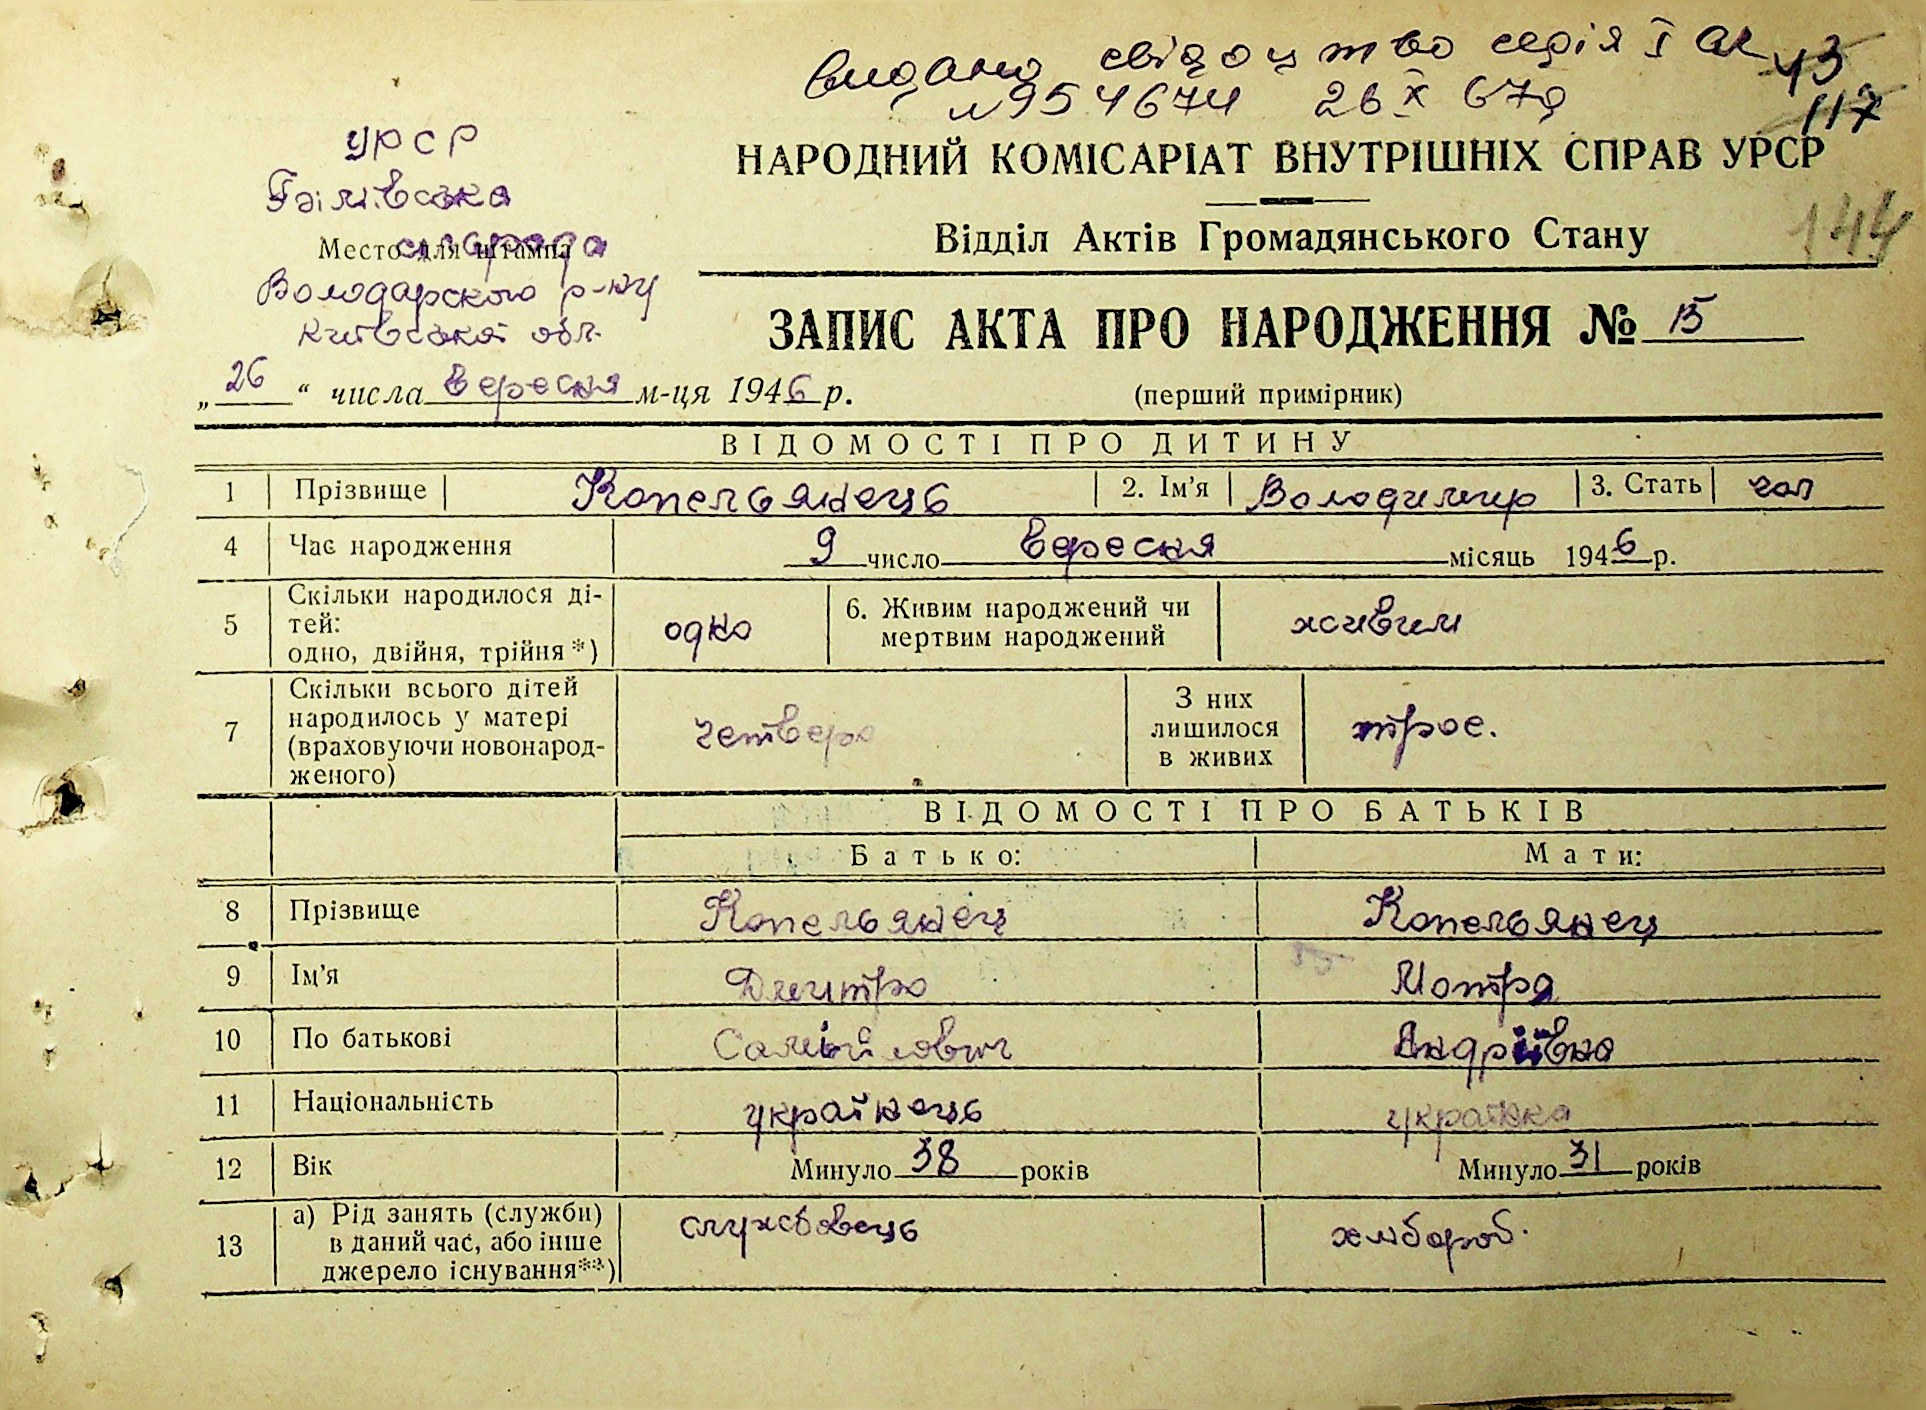 видано свідоцтво серія I АК
№ 954674 26 X 67д
43
117
144
УРСР
Гайівська
сільрада
Место для штампа
Володарского р-ну
Київської обл.
НАРОДНИЙ КОМІСАРІАТ ВНУТРІШНІХ СПРАВ УРСР
Відділ Актів Громадянського Стану
ЗАПИС АКТА ПРО НАРОДЖЕННЯ № 15
„26“ числа вересня м-ця 1946 р.
(перший примірник)
ВІДОМОСТІ ПРО ДИТИНУ
1 Прізвище Копельянець 2. Ім'я Володимир 3. Стать чол
4 Час народження 9 число вересня місяць 1946 р.
5 Скільки народилося ді-
тей:
одно, двійня, трійня *) одно 6. Живим народжений чи
мертвим народжений живим
7 Скільки всього дітей
народилось у матері
(враховуючи новонарод-
женого) четверо З них
лишилося
в живих троє.
ВІДОМОСТІ ПРО БАТЬКІВ
Батько: Мати:
8 Прізвище Копельянец Копельянец
9 Ім'я Дмитро Мотря
10 По батькові Самійлович Андріївна
11 Національність українець українка
12 Вік Минуло 38 років Минуло 31 років
13 а) Рід занять (служби)
в даний час, або інше
джерело існування**) службовець хлібороб.